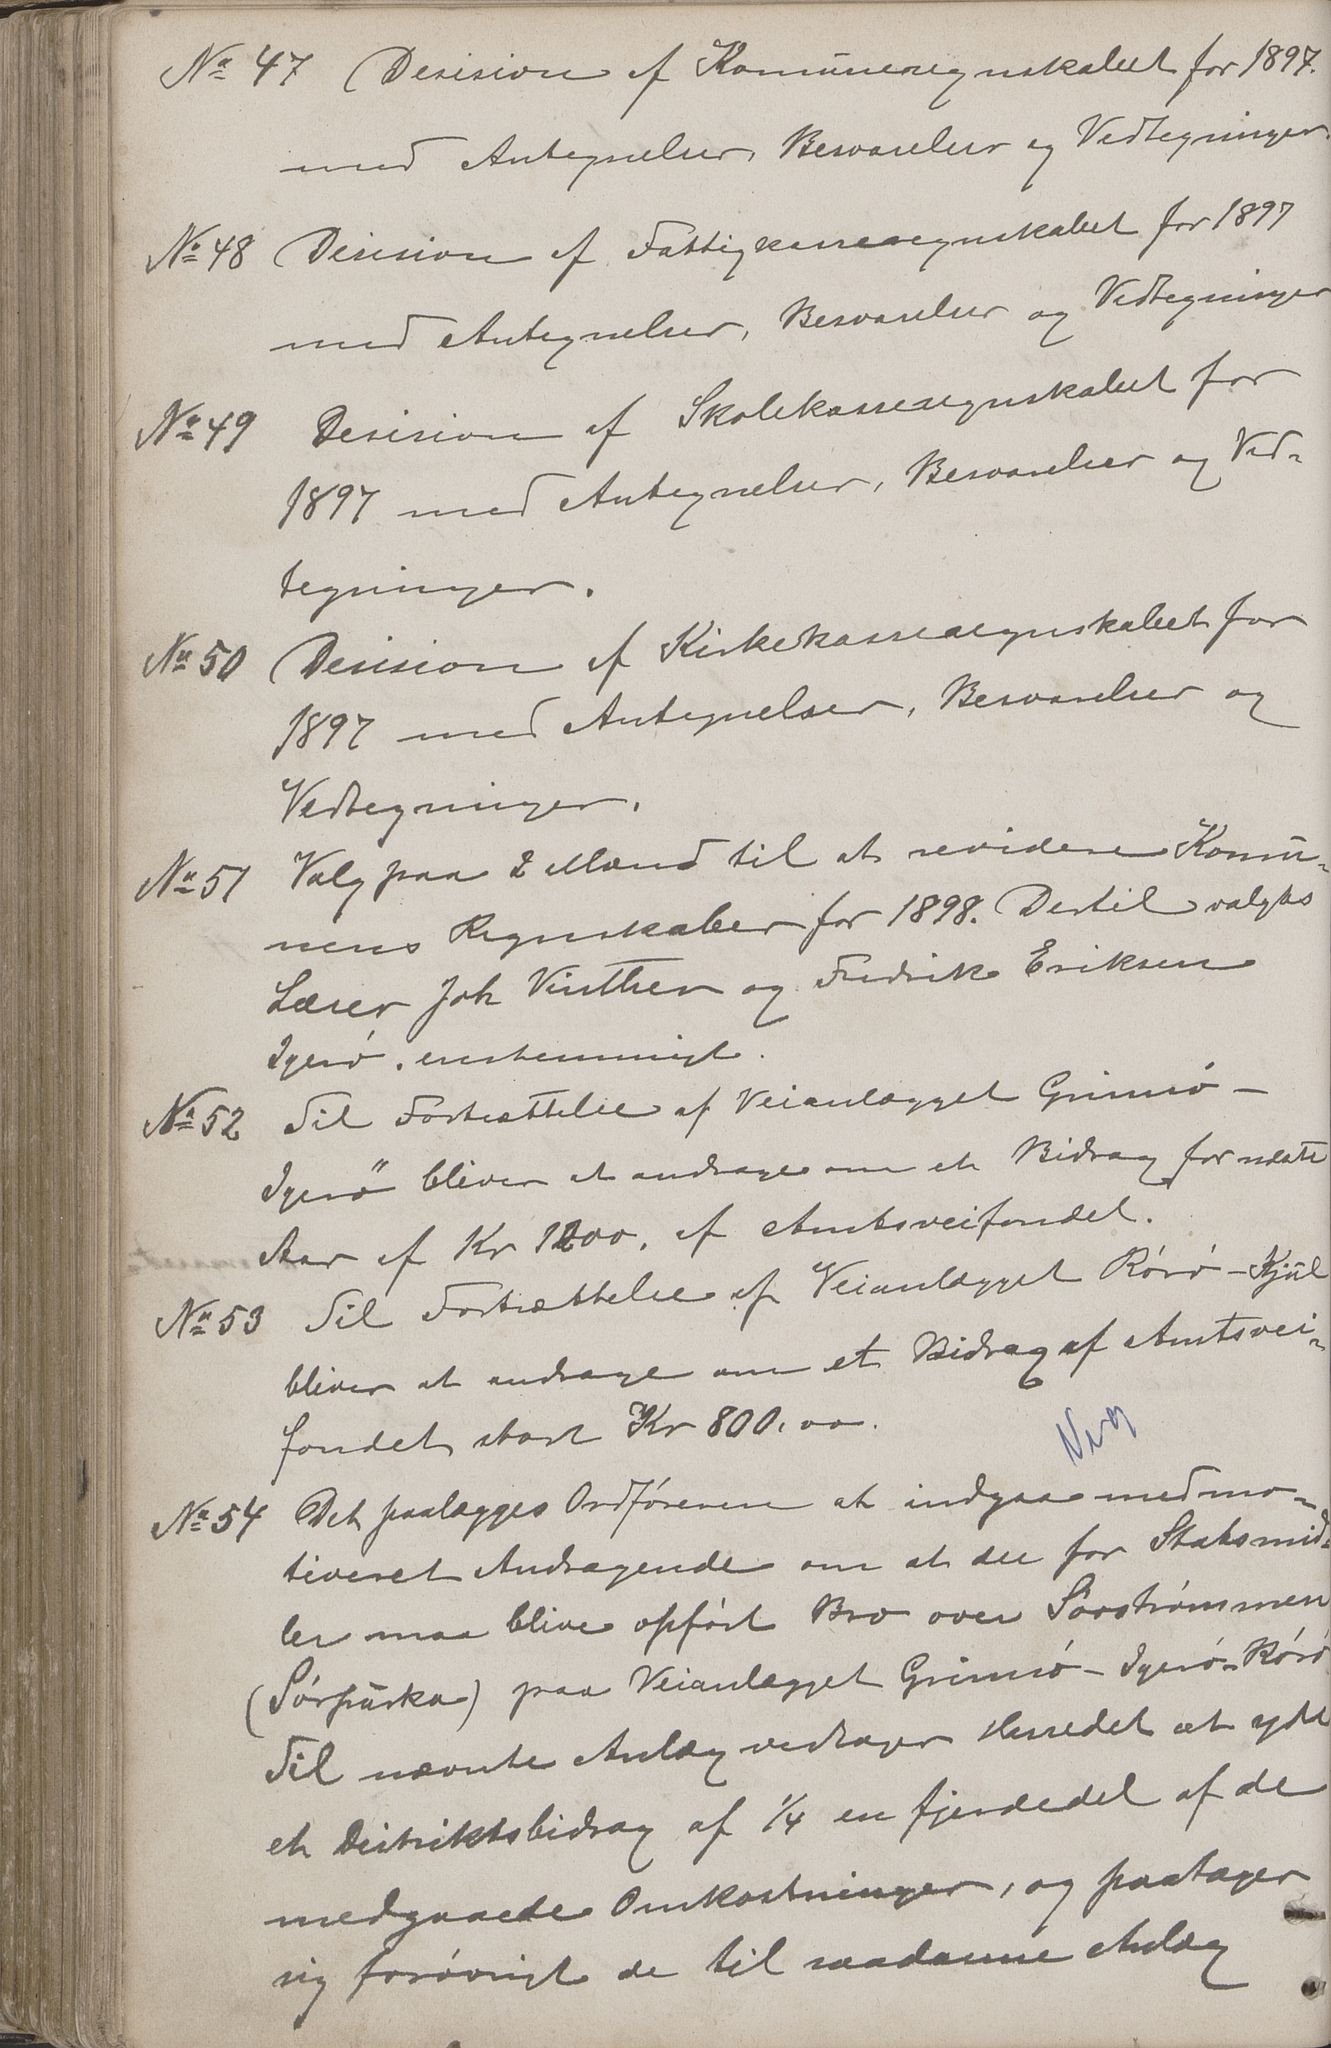 No 47 Desision af Komuneregnskabet for 1897.
med Antegnelser, Besvarelser og Vedtegninger.
No 48 Desision af Fattigkasseregnskabet for 1897
med Antegnelser, Besvarelser og Vedtegninger
No 49 Desision af Skolekasseregnskabet for
1897 med Antegnelser, Besvarelser og Ved-
tegninger.
No 50 Desision af Kirkekasseregnskabet for
1897 med Antegnelser, Besvarelser og
Vedtegninger.
No 51 Valg paa 2 Mænd til at revidere Komu-
nens Regnskaber for 1898. Dertil valgtes
Lærer Joh Vinther og Fredrik Eriksen
Igerø. enstemmigt.
No 52 Til Fortsættelse af Veianlægget Grimsø -
Igerø bliver at andrage om et Bidrag for næste
Aar af Kr 1200. af Amtsveifondet.
No 53 Til Fortsættelse af Veianlægget Rørø - Kjul
bliver at andrage om et Bidrag af Amtsvei-
fondet stort Kr 800.00.
No 54 Det paalægges Ordføreren at indgaa med mo-
tiveret Andragende om at der for Statsmid-
ler maa blive opført Bro over Sørstrømmen
(Sørpurka) paa Veianlægget Grimsø - Igerø - Rørø
Til nævnte Anlæg vedtager Herredet at yde
et Deitriktsbidrag af 1/4 en fjerdedel af de
medgaaede Omkostninger, og paatager
sig forøvrigt de til saadanne Anlæg